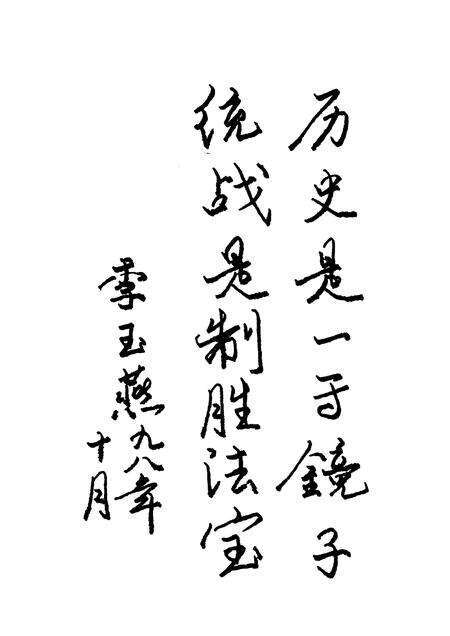 历史是一面镜子
统战是制胜法宝
玉燕九八年
十月